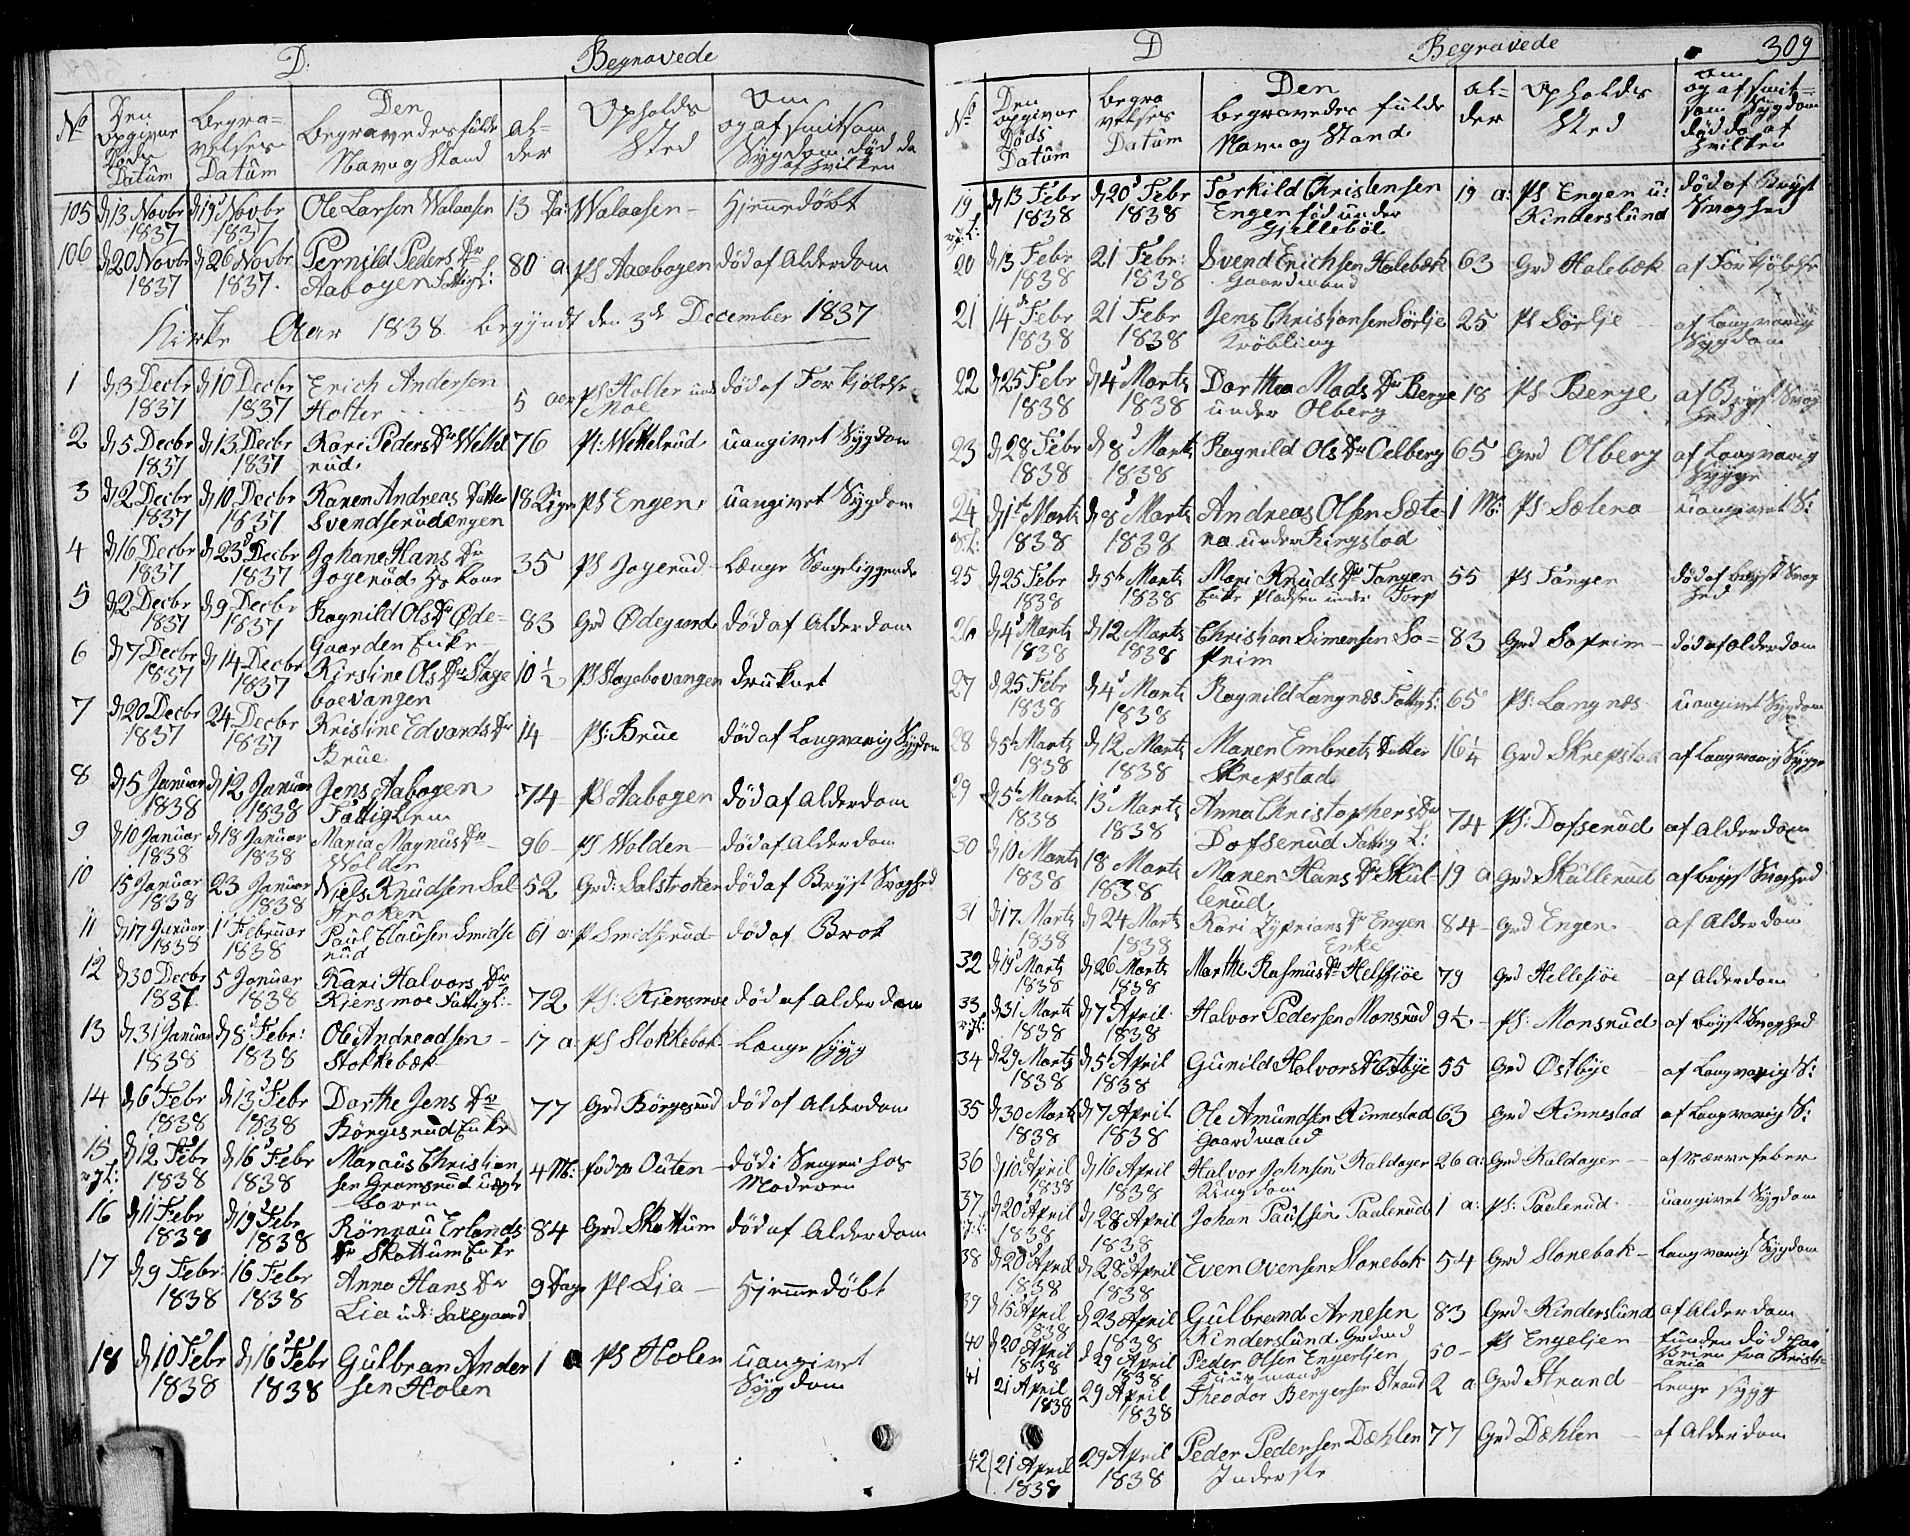 D. Begravede
No Den opgivne Døds Datum Begravelses Datum Den Begravedes fulde Navn og Stand Alder Opholds Sted Om og af smitsom Sygdom død da af hvilken
105 d 13 Novbr 1837 d 19 Novbr 1837 Ole Larsen Walaasen 13 Da: Walaasen – Hjemmedøbt
106 d 20 Novbr 1837 d 26 Novbr 1837. Pernild Peders Dr Aabogen Fattigl: 80 a: Pl Aabogen død af Alderdom
Kirke Aar 1838 begyndt den 3de December 1837
1 d 3 Decbr 1837 d 10 Decbr 1837 Erich Andersen Holter 5 aar Pl Holter und Moe død af Forkjølelse
2 d 5 Decbr 1837 d 13 Decbr 1837 Kari Peders Dr Wittel rud 76 Pl: Wittelrud uangivet Sygdom
3 d 2 Decbr 1837 d 10 Decbr 1837 Karen Andreas Datter Svendserudengen 18 Uger Pl Engen uangivet Sygdom
4 d 16 Decbr 1837 d 23 Decbr 1837 Johane Hans Dr Jogerud Hs Kone 35 Pl Jogerud Længe Sængeliggende
5 d 2 Decbr 1837 d 9 Decbr 1837 Ragnild Ols Dr Øde- Gaarden Enke 83 Grd Ødegaard død af Alderdom
6 d 7 Decbr 1837 d 14 Decbr 1837 Kirstine Ols Dr Stage boevangen 10 1/2 Pl Stagebovangen druknet
7 d 20 Decbr 1837 24 Decbr 1837 Kristine Edvards Dr Brue 14 Pl: Brue død af Langvarig Sygdom
8 d 5 Januar 1838 d 12 Januar 1838 Jens Aabogen Fattiglem 74 Pl Aabogen død af Alderdom
9 d 10 Januar 1838 d 18 Januar 1838 Maria Magnus Dr Wolden 96 Pl Wolden død af Alderdom
10 15 Januar 1838 23 Januar 1838 Niels Knudsen Sal stroken 52 Grd: Salstroken død af Bryst Svaghed
11 d 17 Januar 1838 1 Februar 1838 Paul Clausen Smidse rud 61 a: P Smidserud død af Brok
12 d 30 Decbr 1837 5 Januar 1838 Kari Halvors Dr Kiensmoe Fattigl: 72 Pl: Kiensmoe død af Alderdom
13 d 31 Januar 1838 d 8 Febr: 1838 Ole Andreassen Stokkebæk 17 a: Pl Stokkebæk Længe syyg
14 d 6 Febr 1838 d 13 Febr 1838 Dorthe Jens Dr Börgesrud Enke 77 Grd Börgesrud død af Alderdom
15 d 12 Febr 1838 d 16 Febr 1838 Marcus Christian sen Gramsrud 4 M: død i Sengen hos Moderen
16 d 11 Febr 1838 d 19 Febr 1838 Rönnau Erlands Dr Skottum Enke 84 Grd Skottum død af Alderdom
17 d 9 Febr: 1838 16 Febr 1838 Anna Hans Dr Lia 9 Dage Pl Lia – Hjemmedøbt
18 d 10 Febr 1838 d 16 Febr 1838 Gulbran Ander sen Holen 1 a Pl Holen uangivet Sygdom
D Begravede 309
No Den opgivne Døds Datum Begravelses Datum Den begravedes fulde Navn og Stand Alder Opholdes Sted om og af smitsom Sygdom død da af hvilken
19 d 13 Febr 1838 d 20 Febr 1838 Torkild Christensen Engen fød under Gjellebøl 19 a: Pl Engen u: Kinderslund død af Bryst Svaghed
20 d 13 Febr 1838 21 Febr: 1838 Svend Erichsen Holebæk Gaardmand 63 Grd Holebæk af Forkjølelse
21 14 Febr 1838 21 Febr 1838 Jens Christiansen Sörlie Krøbling 25 Pl Sörlie af Langvarig Sygdom
22 d 25 Febr 1838 d 4 Marts 1838 Dorthea Mads Dr Berge under Olberg 18 Pl Berge af Bryst Svag hed
23 d 28 Febr 1838 d 8 Marts 1838 Ragnild Ols Dr Oelberg 65 Grd Olberg af Langvarig Syyge
24 d 1ste Marts 1838 d 8 Marts 1838 Andreas Olsen Sæte ra under Ringstad 1 M: Pl: Sætera uangivet S:
25 d 25 Febr 1838 d 5te Marts 1838 Mari Knuds Dr Tangen Enke Pladsen under Torp 55 Pl Tangen død af Bryst Svag hed
26 d 4 Marts 1838 d 12 Marts 1838 Christian Simensen So- prim 83 Grd Soprim død af Alderdom
27 d 25 Febr 1838 d 4 Marts 1838 Ragnild Langnæs Fattigl: 65 Pl: Langnæs uangivet Sygdom
28 d 5te Marts 1838 d 12 Marts 1838 Maren Embrets Datter Skrepstad 16 1/4 Grd Skrepstad af Langvarig Syyge
29 d 5te Marts 1838 13 Marts 1838 Anna Christophers Dr Dofserud Fattig L: 74 Pl: Dofserud af Alderdom
30 d 10 Marts 1838 18 Marts 1838 Maren Hans Dr Skul- lerud 19 a Grd Skullerud af bryst Svaghed
31 d 17. Marts 1838 d 24 Marts 1838 Kari Zyprians Dr Engen Enke 84 Grd Engen af Alderdom
32 d 19 Marts 1838 d 26 Marts 1838 Marthe Rasmus Dr Hellesiøe 79 Grd Hellesiøe af Alderdom
33 d 31 Marts 1838 d 7 April 1838 Halvor Pedersen Monsrud 9 1/2 Pl: Monsrud af bryst Svaghed
34 d 29 Marts 1838 d 5te April 1838 Gunild Halvors Dr Østbye 55 Grd Østbye af Langvarig S:
35 d 30 Marts 1838 d 7 April 1838 Ole Amundsen Kinnestad Gaardmand 63 Grd Kinnestad af Langvarig S:
36 d 10 April 1838 d 16 April 1838 Halvor Johnsen Kaldager Ungdom 26 a: Grd Kaldager af Nærvefeber
37 d 20 April 1838 d 28 April 1838 Johan Paulsen Paulerud 1 a: Pl: Paulerud uangivet Sygdom
38 d 20 April 1838 d 28 April 1838 Even Ovensen Stonebæk 54 Grd Stonebæk Langvarig Sygdom
39 d 15 April 1838 d 23 April 1838 Gulbrand Arnesen Kinderslund Grdmd 83 Grd Kinderslund af Alderdom
40 d 20 April 1838 d 29 April 1838 Peder Olsen Engerljen 50 Pl Engeljen funden død paa Veien fra Christi- ania
41 21 April 1838 29 April 1838 Theodor Bergersen Strand 2 a Grd Strand Lenge syyg
42 21 April 1838 29 April 1838 Peder Pedersen Dæhlen Inderste 77 Grd Dæhlen af Alderdom